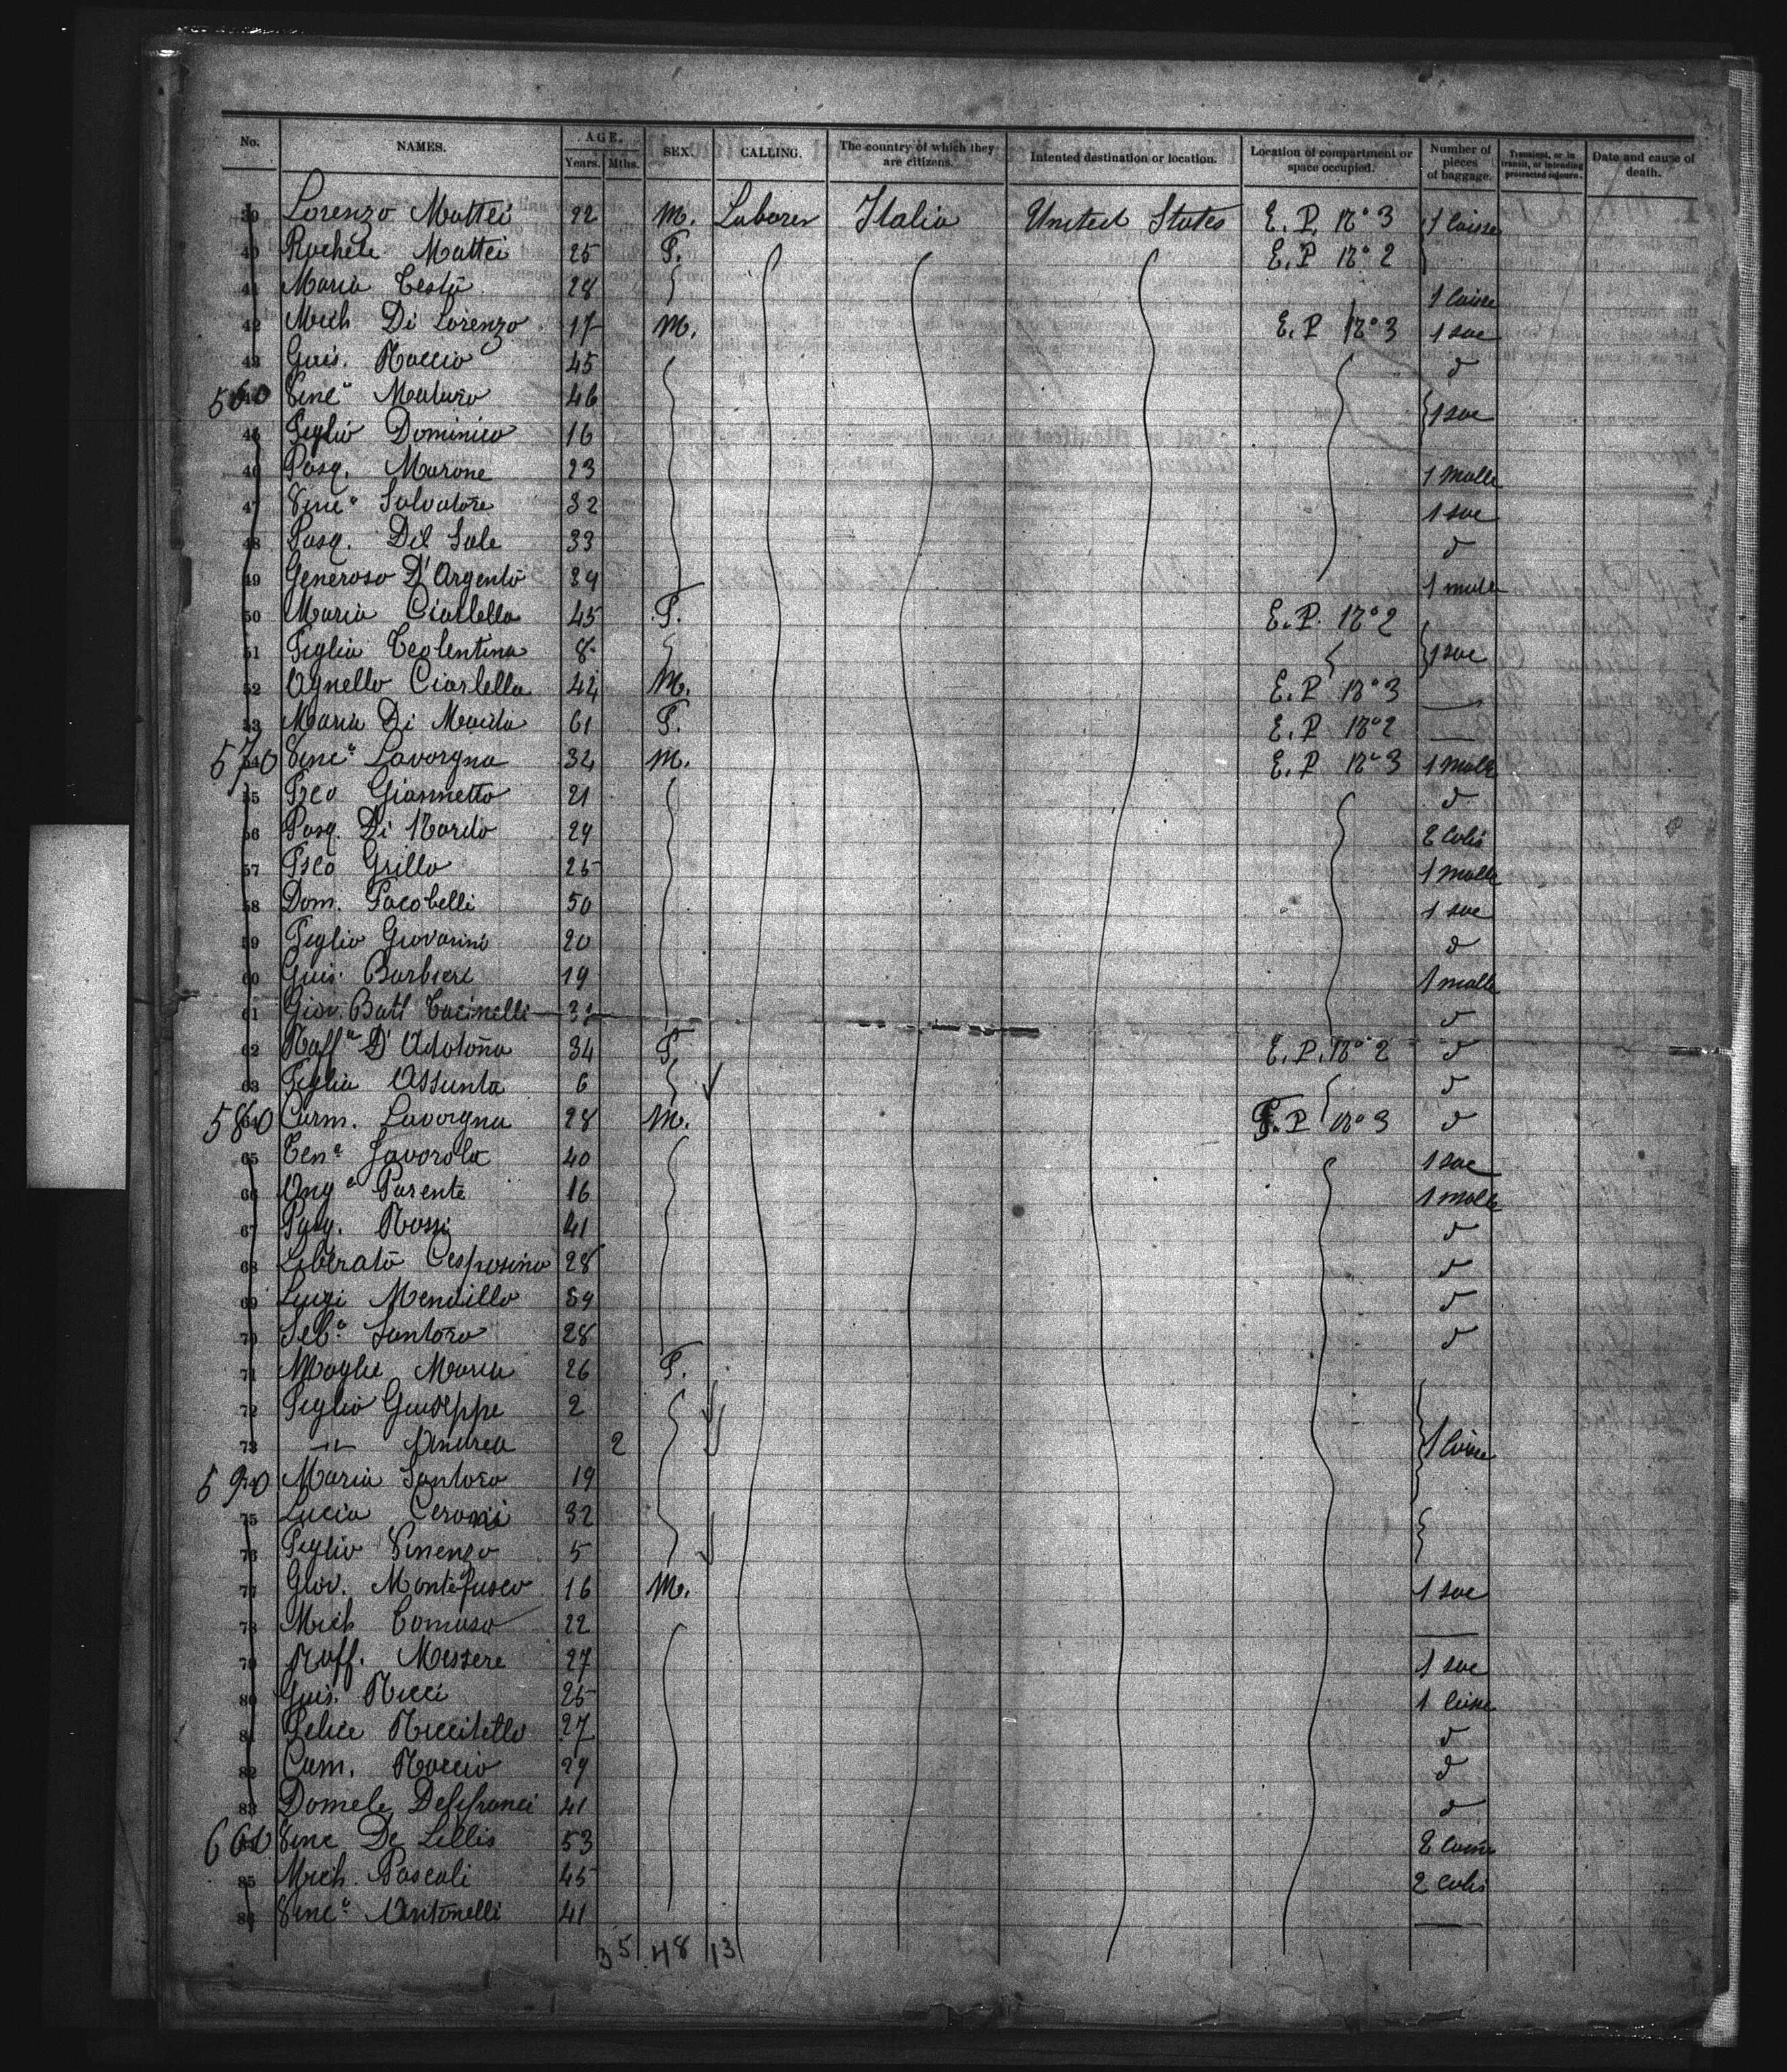 No. NAMES. AGE. Years. Mths. SEX CALLING. The country of which they are citizens. Intented destination or location. Location of compartment or space occupied. Number of pieces of baggage. Transient, or in transit, or intending protracted sojourn. Date and cause of death.
39 Lorenzo Mattei 22 M. Laborer Italia United States E. P. No 3 1 Caisse
40 Rachele Mattei 25 F. E. P No 2
41 Maria Testa 28 1 Caisse
42 Mich Di Lorenzo 17 M. E. P No 3 1 sac
43 Guis. Roccio 45 d
560 Vinc° Maturo 46 1 sac
45 Figlio Dominico 16
46 Pasq. Marone 23 1 Malle
47 Vinc° Salvatore 32 1 sac
48 Pasq. Del Sole 33 d
49 Generoso D'Argento 39 1 malle
50 Maria Ciarlella 45 F. E. P. No 2
51 Figlia Teolentina 8 1 sac
52 Agnello Ciarlella 44 M. E. P No 3 —
53 Maria Di 61 F. E. P No 2 —
570 Vinc° Lavorgna 32 M. E. P No 3 1 Malle
55 Fsco Giannetto 21 d
56 Pasq. Di Nardo 29 2 Colis
57 Fsco Grillo 25 1 Malle
58 Dom. Jacobelli 50 1 sac
59 Figlio Giovanni 20 d
60 Guis. Barbieri 19 1 malle
61 Giov. Batt d
62 Raff° 34 F. E. P. No 2 d
63 Figlia Assunta 6 d
580 Carm. Lavorgna 28 M. E. P No 3 d
65 40 1 sac
66 Ang° Parente 16 1 Malle
67 Pasq. Rossi 41 d
68 Liberato 28 d
69 Luigi Mendillo 39 d
70 Seb° Santoro 28 d
71 Moglie Maria 26 F.
72 Figlio Giuseppe 2
73 -"- Andrea 2 1 Caisse
590 Maria Santoro 19
75 Lucia Ceroni 32
76 Figlio Vinenzo 5
77 Giov. Montefusco 16 M. 1 sac
78 Mich Tomaso 22 —
79 Raff. Messere 27 1 sac
80 Guis. Ricci 25 1 Caisse
81 Felice Riccitello 27 d
82 Cam. Roccio 29 d
83 41 d
600 Vinc De Lellis 53 2 Caisse
85 Mich. Pascali 45 2 Colis
86 Vinc° Antonelli 41 —
35 48 13